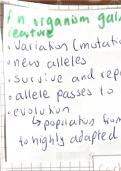 n organism gai
feature
• Variation (mutatio
• new alleles
• survive and rep
• allele passes to
• evolution
↳ population from
to highly adapted